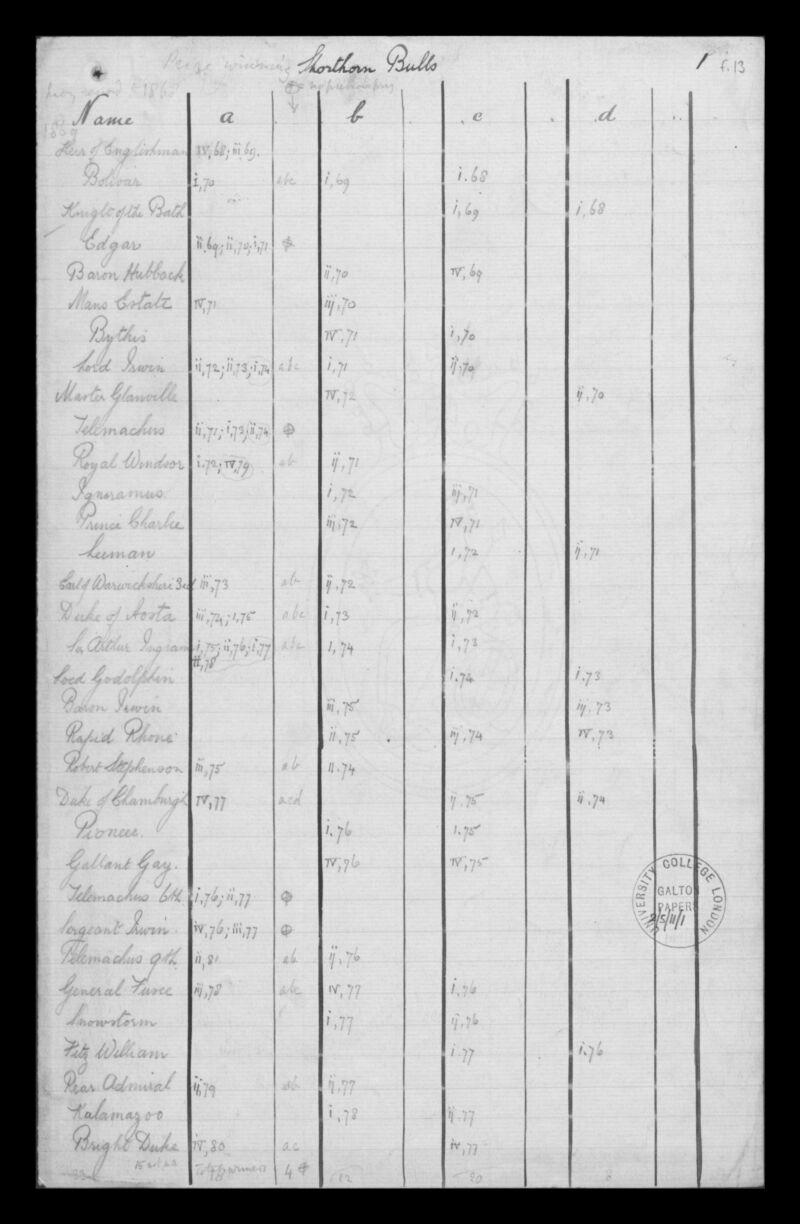 Prize winning Shorthorn Bulls 1 f.13
1868
Name a b c d
1869
Heir of Englishman iv,68; iii 69.
Bolivar i,70 abc i,69 i.68
Knight of the Bath i,69 i,68
Edgar ii.69; ii,70; i,71 ϕ
Baron Hubback ii,70 iv,69
Mans Estate iv,71 iij,70
Bythis iv,71 i,70
Lord Irwin ii,72; ii,73; i,74 abc i,71 ij,70
Master Glanville iv,72 ij,70
Telemachus ii,71; i,73; ii,74 ϕ
Royal Windsor i.72; iv,79 ab ij,71
Ignoramus i,72 iij,71
Prince Charlie iii,72 iv,71
Leeman 1,72 ij,71
Earl of Warwickshire 3rd iii,73 ab ij,72
Duke of Aosta iii,74; 1,75 abc i,73 ij,72
Sir Arthur Ingram i,75; ii,76; i,77 abc 1,74 i,73
ii,78
Lord Godolphin i.74 i.73
Baron Irwin iii,75 iij.73
Rapid Rhone ii,75 iij,74 iv,73
Robert Stephenson iii,75 ab ii.74
Duke of Chamburgh iv,77 acd ij.75 ii.74
Pioneer. i.76 1.75
Gallant Gay. iv,76 iv,75
Telemachus 6th i,76; ii,77 ϕ
Sergeant Irwin iv,76; iii,77 ϕ
Telemachus 9th ii,81 ab ij,76
General Fusee iij,78 abc iv,77 i,76
Snowstorm i,77 ij,76
Fitz William i.77 i.76
Rear Admiral ij,79 ab ij,77
Kalamazoo i,78 ij.77
Bright Duke iv,80 ac iv,77
33 18 4 ϕ 12 20 8
UNIVERSITY COLLEGE LONDON
GALTON
PAPERS
2/5/11/1